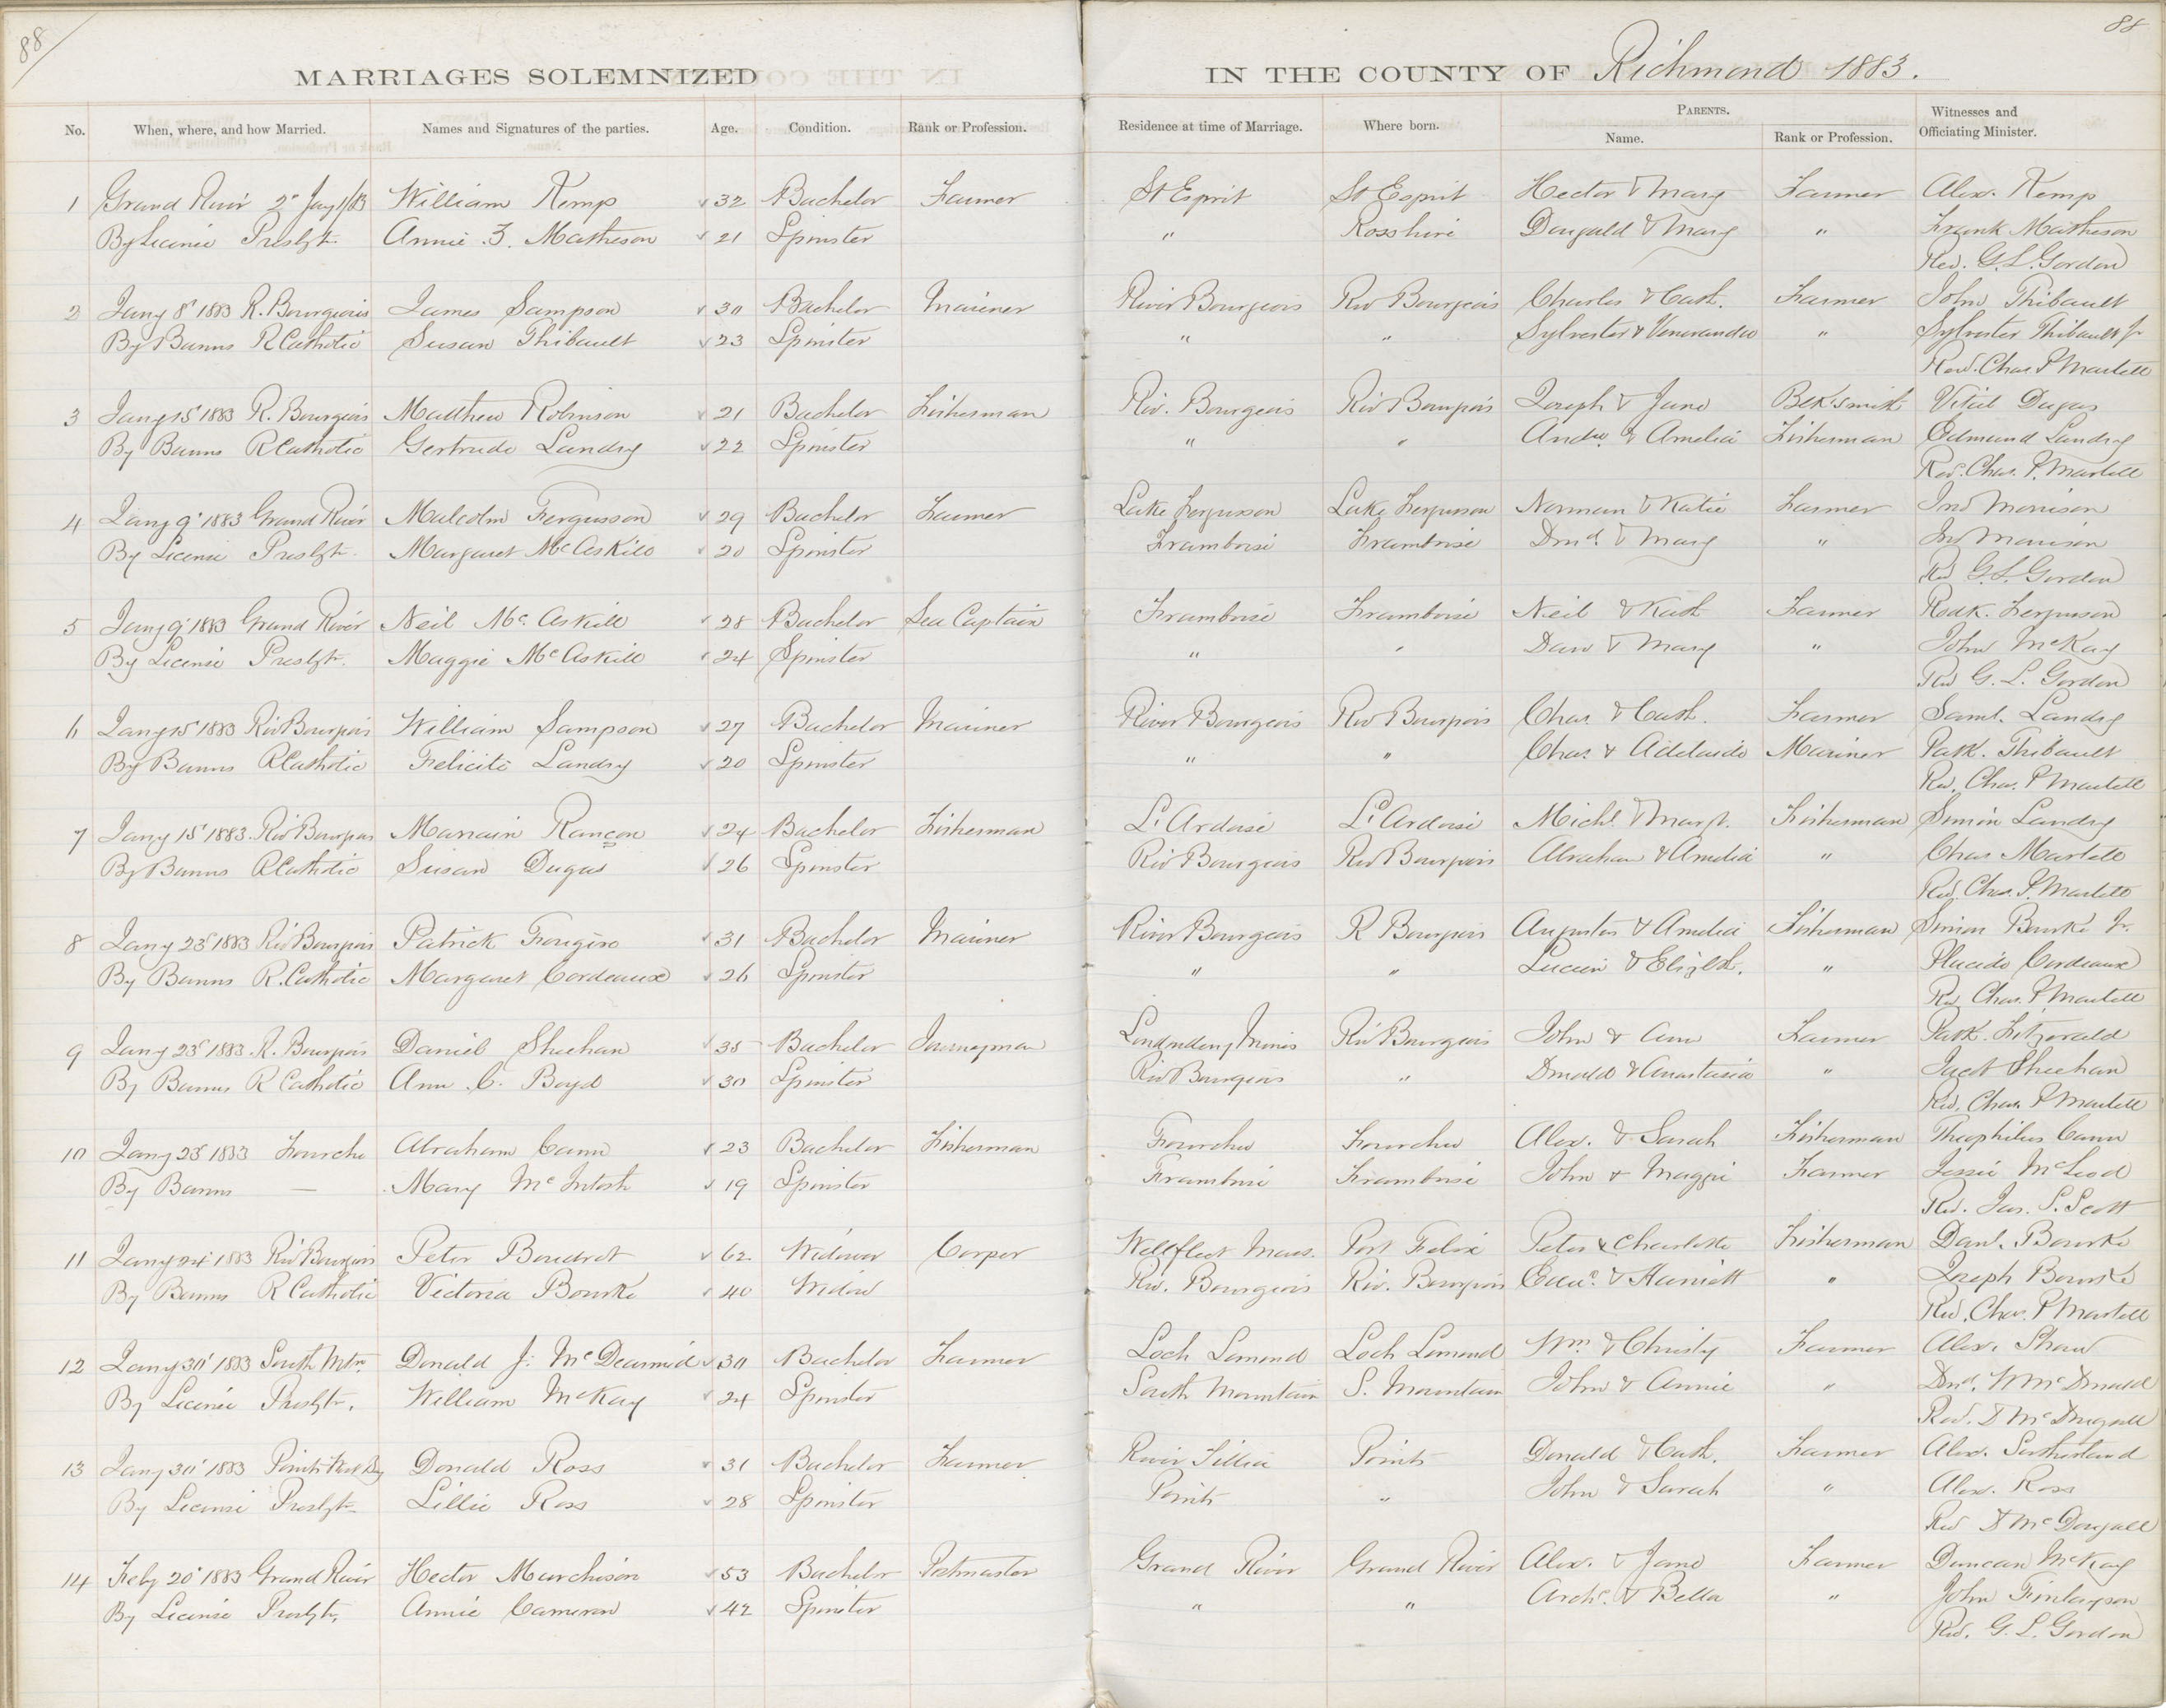 88 88
MARRIAGES SOLEMNIZED IN THE COUNTY OF Richmond 1883.
No. When, where, and how Married. Names and Signatures of the parties. Age. Condition. Rank or Profession. Residence at time of Marriage. Where born. PARENTS. Name. Rank or Profession. Witnesses and Officiating Minister.
1 Grand River 2" Jany /83 William Kemp 32 Bachelor Farmer St Esprit St Esprit Hector & Mary Farmer Alex. Kemp
By License Presbytn. Annie Matheson 21 Spinster " Rosshire Dougald & Mary " Frank Matheson
Rev. G. L. Gordon
2 Jany 8" 1883 R. Bourgeois James Sampson 30 Bachelor Mariner River Bourgeois Riv Bourgeois Charles & Cath. Farmer John Thibault
By Banns R Catholic Susan Thibault 23 Spinster " " Sylvester & Venerandie " Sylvester Thibault Jr
Rev. Chas P Martell
3 Jany 15" 1883 R. Bourgeois Matthew Robinson 21 Bachelor Fisherman Riv. Bourgeois Riv Bourgeois Joseph & Jane Blk Smith Vital Dugas
By Banns R Catholic Gertrude Landry 22 Spinster " " Andw & Amelia Fisherman Edmund Landry
Rev. Chas. P. Martell
4 Jany 9" 1883 Grand River Malcolm Fergusson 29 Bachelor Farmer Lake Fergusson Lake Fergusson Norman & Katie Farmer Jno Morrison
By License Presbytn. Margaret McAskill 20 Spinster Framboise Framboise Dond. & Mary " Jno Morrison
Rev G. L. Gordon
5 Jany 9" 1883 Grand River Neil Mc. Askill 28 Bachelor Sea Captain Framboise Framboise Neil & Kath Farmer Rodk. Fergusson
By License Presbytn. Maggie McAskill 24 Spinster " " & Mary " John McKay
Rev G. L. Gordon
6 Jany 15" 1883 Riv Bourgeois William Sampson 27 Bachelor Mariner River Bourgeois Riv Bourgeois Chas. & Cath. Farmer Saml. Landry
By Banns R Catholic Felicité Landry 20 Spinster " " Chas. & Adelaide Mariner Patk. Thibault
Rev. Chas. P Martell
7 Jany 15" 1883. Riv Bourgeois Rançon 24 Bachelor Fisherman L'Ardoise L'Ardoise Michl. & Margt. Fisherman Simon Landry
By Banns R Catholic Susan Dugas 26 Spinster Riv Bourgeois Riv Bourgeois Abraham & Amelia " Chas Martell
Rev. Chas. P. Martell
8 Jany 23" 1883 Riv Bourgeois Patrick Fougère 31 Bachelor Mariner River Bourgeois R Bourgeois Augustus & Amelia Fisherman Simon Bourke Jr.
By Banns R. Catholic Margaret Cordeaux 26 Spinster " " Lucien & Elizbth. " Placide Cordeaux
Rev. Chas. P Martell
9 Jany 23" 1883. R. Bourgeois Daniel Sheehan 35 Bachelor Journeyman Londonderry Mines Riv Bourgeois John & Ann Farmer Patk. Fitzgerald
By Banns R Catholic Ann C. Boyd 30 Spinster Riv Bourgeois " Donald & Anastasia " Sheehan
Rev. Chas. P Martell
10 Jany 23" 1883 Fourche Abraham Cann 23 Bachelor Fisherman Fourchu Fourchu Alex. & Sarah Fisherman Theophilus Cann
By Banns — Mary McIntosh 19 Spinster Framboise Framboise John & Maggie Farmer Jessie McLeod
Rev. Jas. S. Scott
11 Jany 24" 1883 Riv Bourgeois Peter Boudrot 62 Widower Cooper Wellfleet Mass. Port Felix Peter & Charlotte Fisherman Danl. Bourke
By Banns R Catholic Victoria Bourke 40 Widow Riv. Bourgeois Riv. Bourgeois & Harriett " Joseph Bourke
Rev. Chas. P Martell
12 Jany 30" 1883 South Mtn Donald J. McDearmid 30 Bachelor Farmer Loch Lomond Loch Lomond Wm. & Christy Farmer Alex. Shaw
By License Presbytn. William McKay 24 Spinster South Mountain S. Mountain John & Annie " Dnd. W McDonald
Rev. D McDougall
13 Jany 30" 1883 Points Donald Ross 31 Bachelor Farmer River Tillia Points Donald & Cath. Farmer Alex. Sutherland
By License Presbytn Lillie Ross 28 Spinster Points " John & Sarah " Alex. Ross
Rev D McDougall
14 Feby 20" 1883 Grand River Hector Murchison 53 Bachelor Postmaster Grand River Grand River Alex. & Jane Farmer Duncan McKay
By License Presbytn. Annie Cameron 42 Spinster " " Archd. & Bella " John Finlayson
Rev. G. L. Gordon